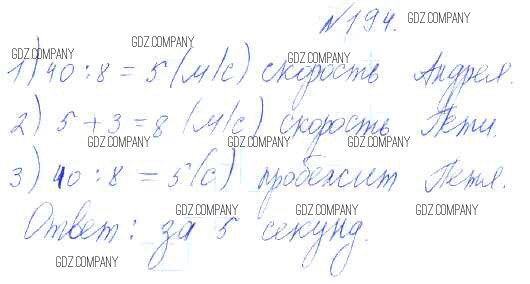 №194.
1) 40 : 8 = 5 (м/с) скорость Андрея.
2) 5 + 3 = 8 (м/с) скорость Пети.
3) 40 : 8 = 5 (с) пробежит Петя.
Ответ: за 5 секунд.
GDZ.COMPANY
GDZ.COMPANY
GDZ.COMPANY
GDZ.COMPANY
GDZ.COMPANY
GDZ.COMPANY
GDZ.COMPANY
GDZ.COMPANY
GDZ.COMPANY
GDZ.COMPANY
GDZ.COMPANY